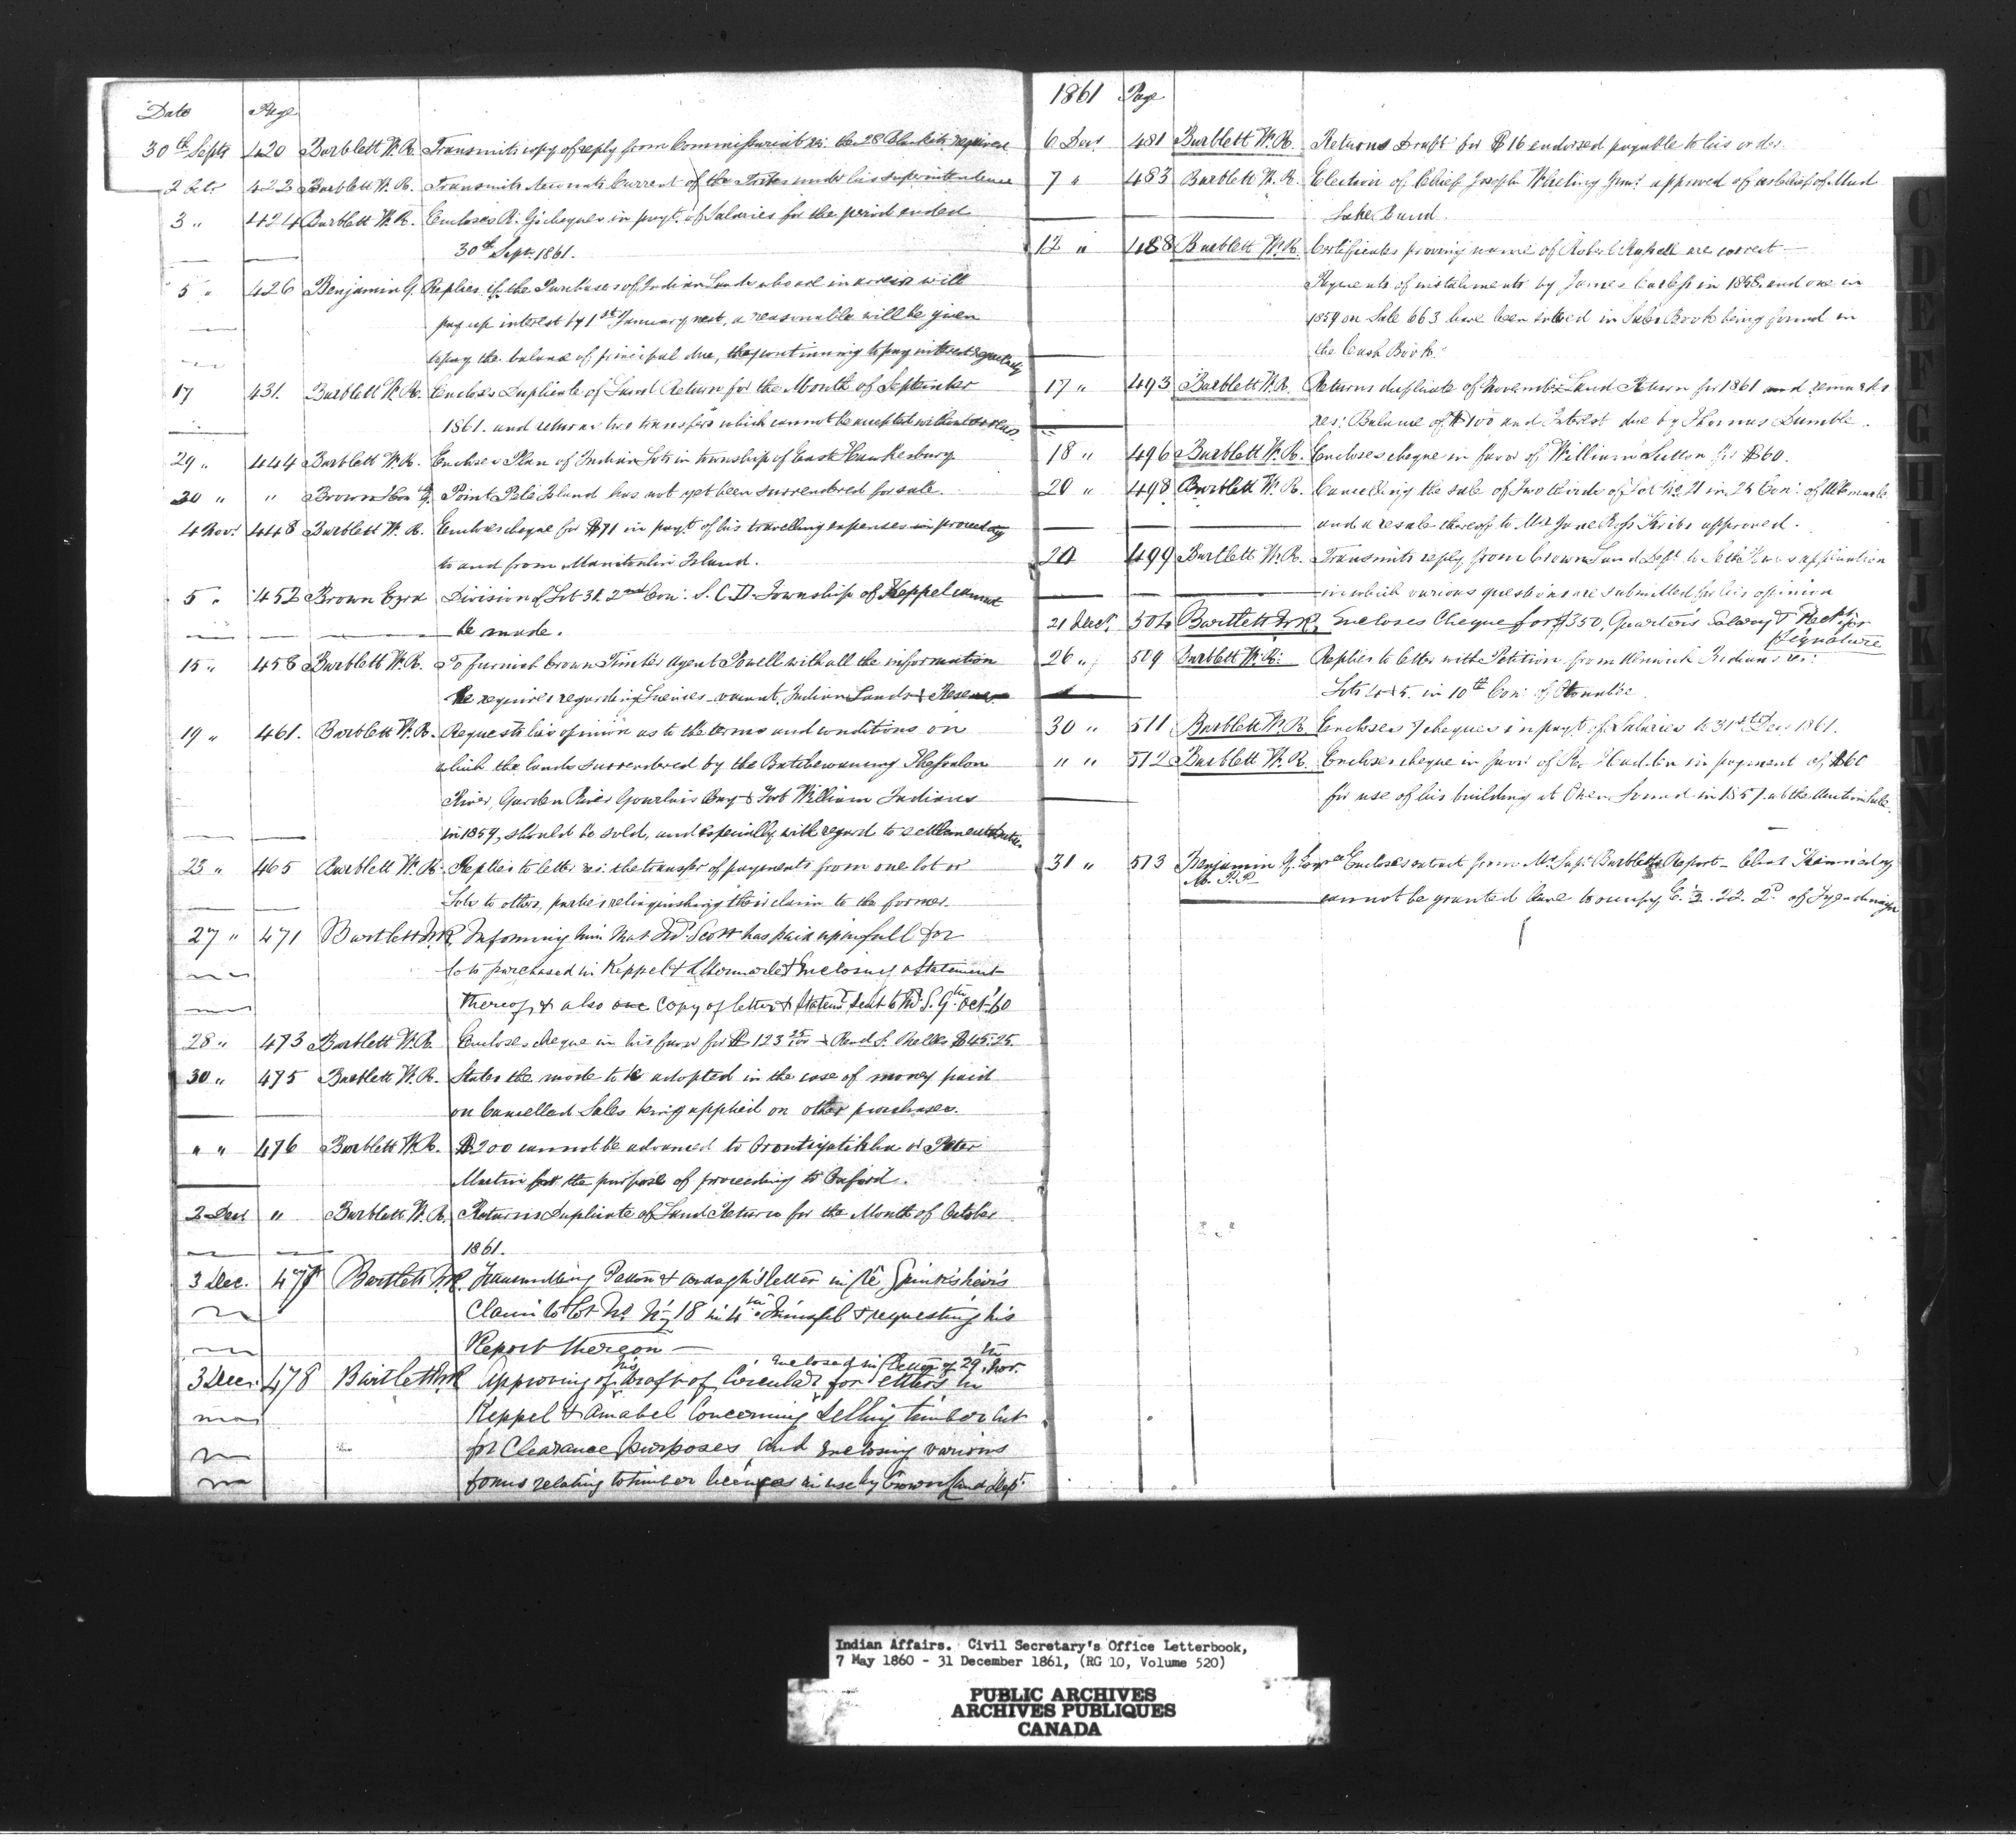 Date Page
30th Septr 420 Bartlett W. R. Transmits copy of reply from Commissariat re: the 28 Blankets required
2 Octr 422 Bartlett W. R. Transmits Accounts Current of the Tribes under his superintendence
3 " 424 Bartlett W. R. Encloses R. G's cheques in payt. of Salaries for the period ended
30th Sept. 1861.
5 " 426 Benjamin G. Replies if the Purchasers of Indian Lands who are in arrears will
pay up interest by 1st January next, a reasonable will be given
to pay the balance of principal due, they continuing to pay interest regularly
17 431. Bartlett W. R. Encloses Duplicate of Land Return for the Month of September
1861. and returns two transfers which cannot be accepted without
29 " 444 Bartlett W. R. Encloses Plan of Indian Lots in township of East Hawkesbury
30 " " Brown Hon G. Point Pelé Island has not yet been surrendered for sale.
4 Novr 448 Bartlett W. R. Encloses cheque for $71 in payt. of his travelling expenses in proceeding
to and from Manitoulin Island.
5 " 452 Brown Ezra Division of Lot 31. 2nd Con: S. C. D. Township of Keppel cannot
be made.
15 " 458 Bartlett W. R. To furnish Crown Timber Agent Powell with all the information
he requires regarding Licenses vacant, Indian Lands & Reserves
19 " 461. Bartlett W. R. Requests his opinion as to the terms and conditions on
which the lands surrendered by the Batchewanung Thessalon
River, Garden River Goulais Bay & Fort William Indians
in 1859, should be sold, and especially with regard to settlement duties
23 " 465 Bartlett W. R. Replies to letter res: the transfer of payments from one lot or
Lots to others, parties relinquishing their claim to the former.
27 " 471 Bartlett W. R. Informing him that Thos. Scott has paid up in full for
lots purchased in Keppel & Albemarle & Enclosing a Statement
thereof, & also one Copy of letter & Statemt sent to T. S. 9th Oct. '60
28 " 473 Bartlett W. R. Encloses cheque in his favor for $123 25/100 & Revd. S. $45.25.
30 " 475 Bartlett W. R. States the mode to be adopted in the case of money paid
on Cancelled Sales being applied on other purchases.
" " 476 Bartlett W. R. $200 cannot be advanced to or Peter
Martin for the purpose of proceeding to Oxford.
2 Decr " Bartlett W. R. Returns Duplicate of Land Return for the Month of October
1861.
3 Dec. 477 Bartlett W. R. Transmitting Patton & Ardagh's letter in re Spink's heirs
Claim to Lot No. N½ 18 in 4th Innisfil & requesting his
Report thereon —
3 Decr. 478 Bartlett W. R. Approving of his draft of Circular enclosed in letter of 29th Nov. for settlers in
Keppel & Amabel Concerning selling timber cut
for Clearance purposes, and enclosing various
forms relating to timber licenses in use by Crown Land Dept.
1861 Page
6 Decr 481 Bartlett W. R. Returns Draft for $16 endorsed payable to his order.
7 " 483 Bartlett W. R. Election of Chief Joseph Whetung Junr. approved of as Chief of Mud
Lake Band.
12 " 488 Bartlett W. R. Certificates proving name of Robert Russell are correct —
Payments of instalments by James Carless in 1858. and one in
1859 on Sale 663 have been entered in Sales Book being found in
the Cash Book.
17 " 493 Bartlett W. R. Returns duplicate of November Land Return for 1861 and remarks
res: Balance of $100 and Interest due by Thomas Dumble.
18 " 496 Bartlett W. R. Encloses cheque in favor of William Sutton for $60.
20 " 498 Bartlett W. R. Cancelling the sale of Two thirds of Lot No. 21 in 25 Con: of Albemarle
and a resale thereof to Mrs Jane Ross approved.
20 499 Bartlett W. R. Transmits reply from Crown Land Dept. to application
in which various questions are submitted for his opinion
21 Decr. 504 Bartlett W. R. Encloses Cheque for $350, Quarter's Salary & Rect. for
signature
26 " 509 Bartlett W. R: Replies to letter with Petition from Alnwick Indians re:
Lots 4 & 5. in 10th Con: of Otonabee
30 " 511 Bartlett W. R. Encloses 7 cheques in payt. of Salaries to 31st Decr 1861.
" " 512 Bartlett W. R. Encloses cheque in favor of in payment of $60
for use of his building at Owen Sound in 1857. at the Auction Sale.
31 " 513 Benjamin G. Esqre Encloses extract from Mr. Supt. Bartletts Report — that Kennedy
M. P. P. cannot be granted leave to occupy E. ½. 22. 2d of Tyendinaga
C
D
E
F
G
H
I
J
K
L
Indian Affairs. Civil Secretary's Office Letterbook,
7 May 1860 - 31 December 1861, (RG 10, Volume 520)
PUBLIC ARCHIVES
ARCHIVES PUBLIQUES
CANADA